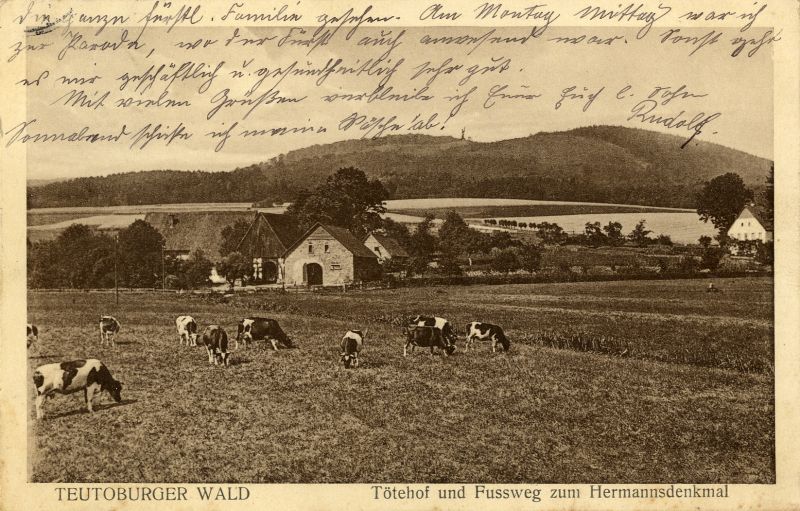 die ganze fürstl. Familie gesehen. Am Montag Mittag war ich
zur Parade, wo der Fürst auch anwesend war. Sonst geht
es mir geschäftlich u. gesundheitlich sehr gut.
Mit vielen Grüßen verbleibe ich Euer Euch l. Sohn
Rudolf.
Sonnabend schicke ich meine Wäsche ab.
TEUTOBURGER WALD
Tötehof und Fussweg zum Hermannsdenkmal